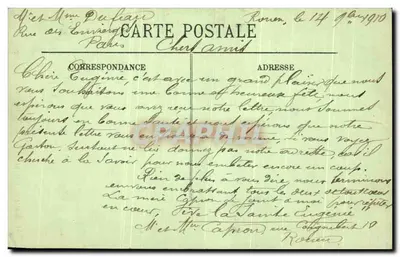 Mr et Mme Dufiage Rouen, le 14 9bre 1910
Rue des
Paris
CARTE POSTALE
Chers amis
CORRESPONDANCE ADRESSE
Chère Eugénie c'est avec un grand plaisir que nous
vous souhaitons une bonne et heureuse fête, nous
espérons que vous avez reçu notre lettre, nous sommes
toujours en bonne santé et nous espérons que notre
présente lettre vous de même à vous voyez
Gaston. Surtout ne lui donnez pas notre adresse, s'il
cherche à la savoir pour nous embêter encore un coup.
Rien de plus à vous dire nous terminons
en vous embrassant tous les deux
La mère Capron se joint à moi pour répéter
en cœur, Vive la Sainte Eugénie
Mr et Mme Capron rue 10
Rouen